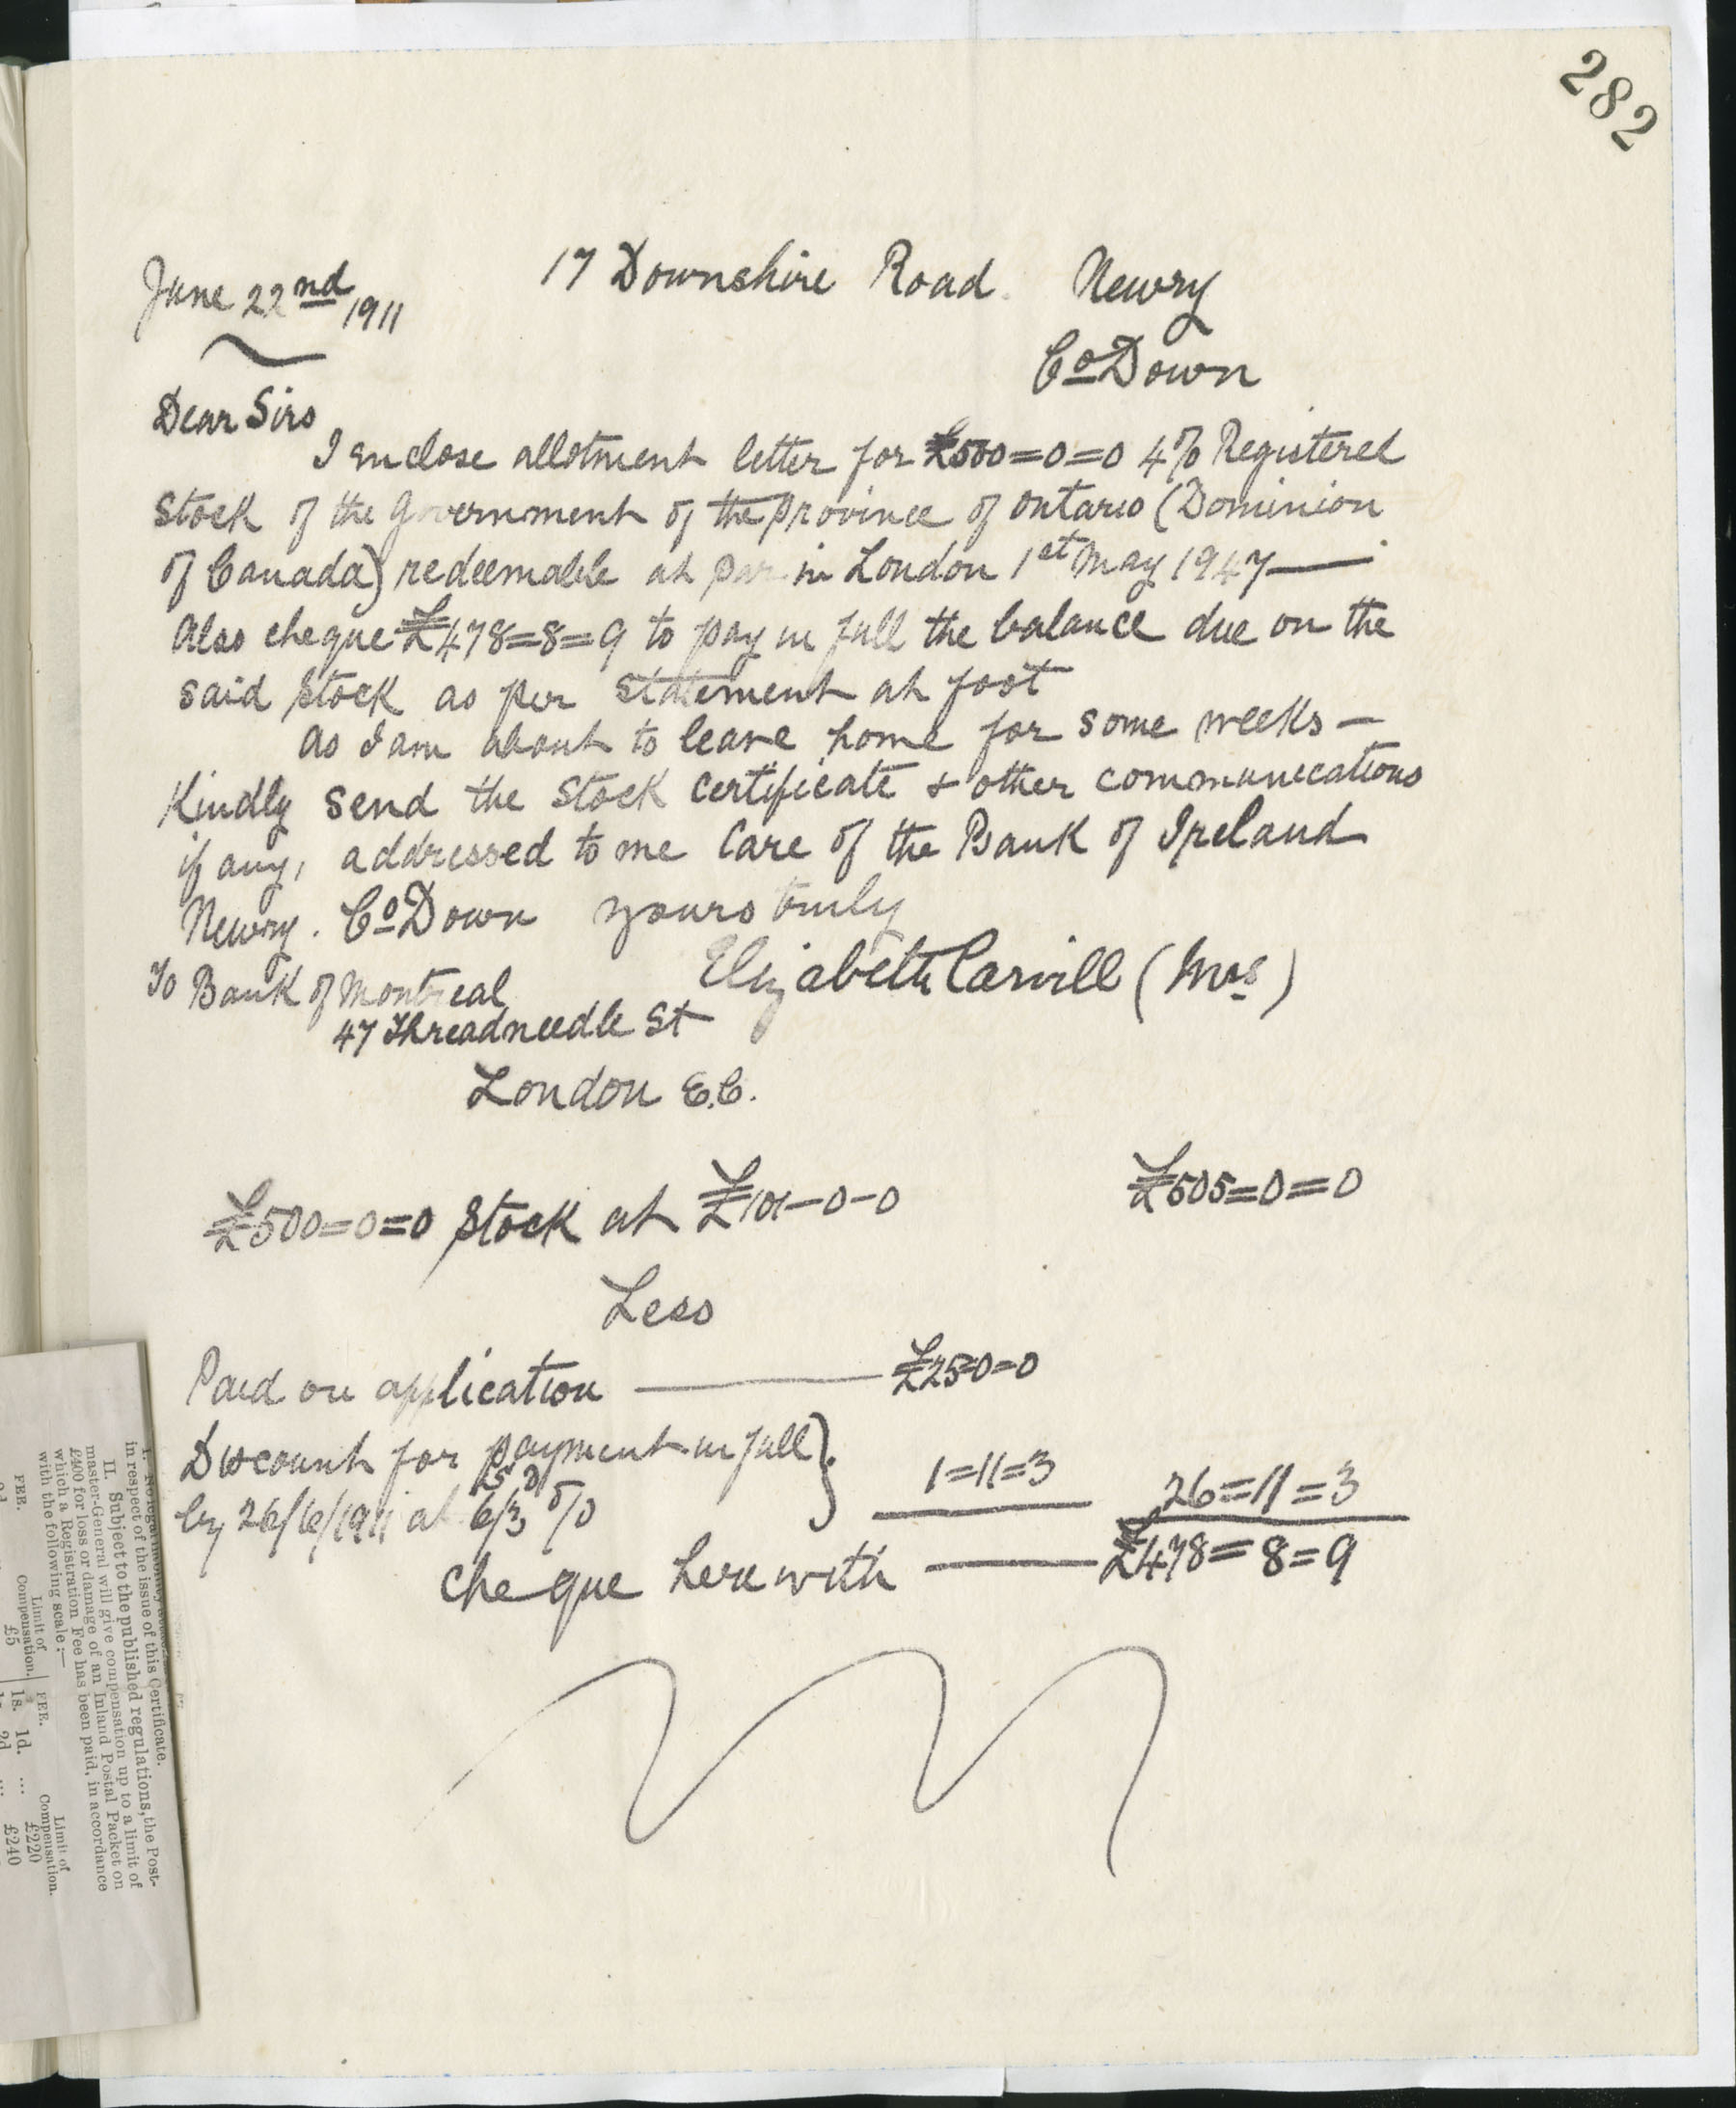 282
June 22nd 1911
17 Downshire Road. Newry
Co Down
Dear Sirs
I enclose allotment letter for £500=0=0 4% Registered
Stock of the Government of the Province of Ontario (Dominion
of Canada) redeemable at par in London 1st May 1947—
Also cheque £478=8=9 to pay in full the balance due on the
said Stock as per statement at foot
As I am about to leave home for some weeks—
Kindly send the Stock Certificate & other communications
if any, addressed to me Care of the Bank of Ireland
Newry. Co Down yours truly
Elizabeth Carvill (Mrs)
To Bank of Montreal
47 Threadneedle St
London E.C.
£500=0=0 Stock at £101-0-0 £505=0=0
Less
Paid on application — £25=0=0
Discount for payment in full }
by 26/6/1911 at 6/3 % 1=11=3 26=11=3
S D
Cheque herewith — £478=8=9
in respect of the issue of this Certificate.
II. Subject to the published regulations, the Post-
master-General will give compensation up to a limit of
£400 for loss or damage of an Inland Postal Packet on
which a Registration Fee has been paid, in accordance
with the following scale:—
Limit of Limit of
FEE. Compensation. FEE. Compensation.
£5 1s. 1d. ... £220
2d ... £240